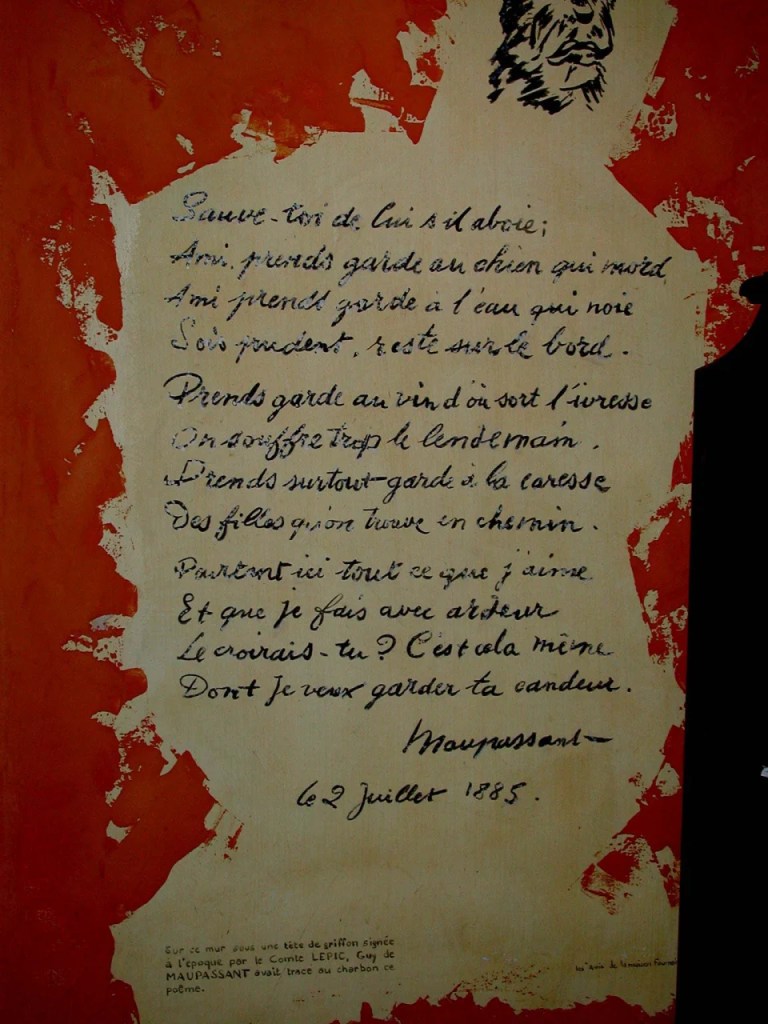 Sauve-toi de lui s'il aboie;
Ami prends garde au chien qui mord
Ami prends garde à l'eau qui noie
Sois prudent, reste sur le bord.
Prends garde au vin d'où sort l'ivresse
On souffre trop le lendemain.
Prends surtout garde à la caresse
Des filles qu'on trouve en chemin.
Pourtant ici tout ce que j'aime
Et que je fais avec ardeur
Le croirais-tu? C'est cela même
Dont je veux garder ta candeur.
Maupassant
le 2 Juillet 1885.
Sur ce mur sous une tête de griffon signée
à l'époque par le Comte LEPIC, Guy de
MAUPASSANT avait tracé au charbon ce
poême.
de la maison